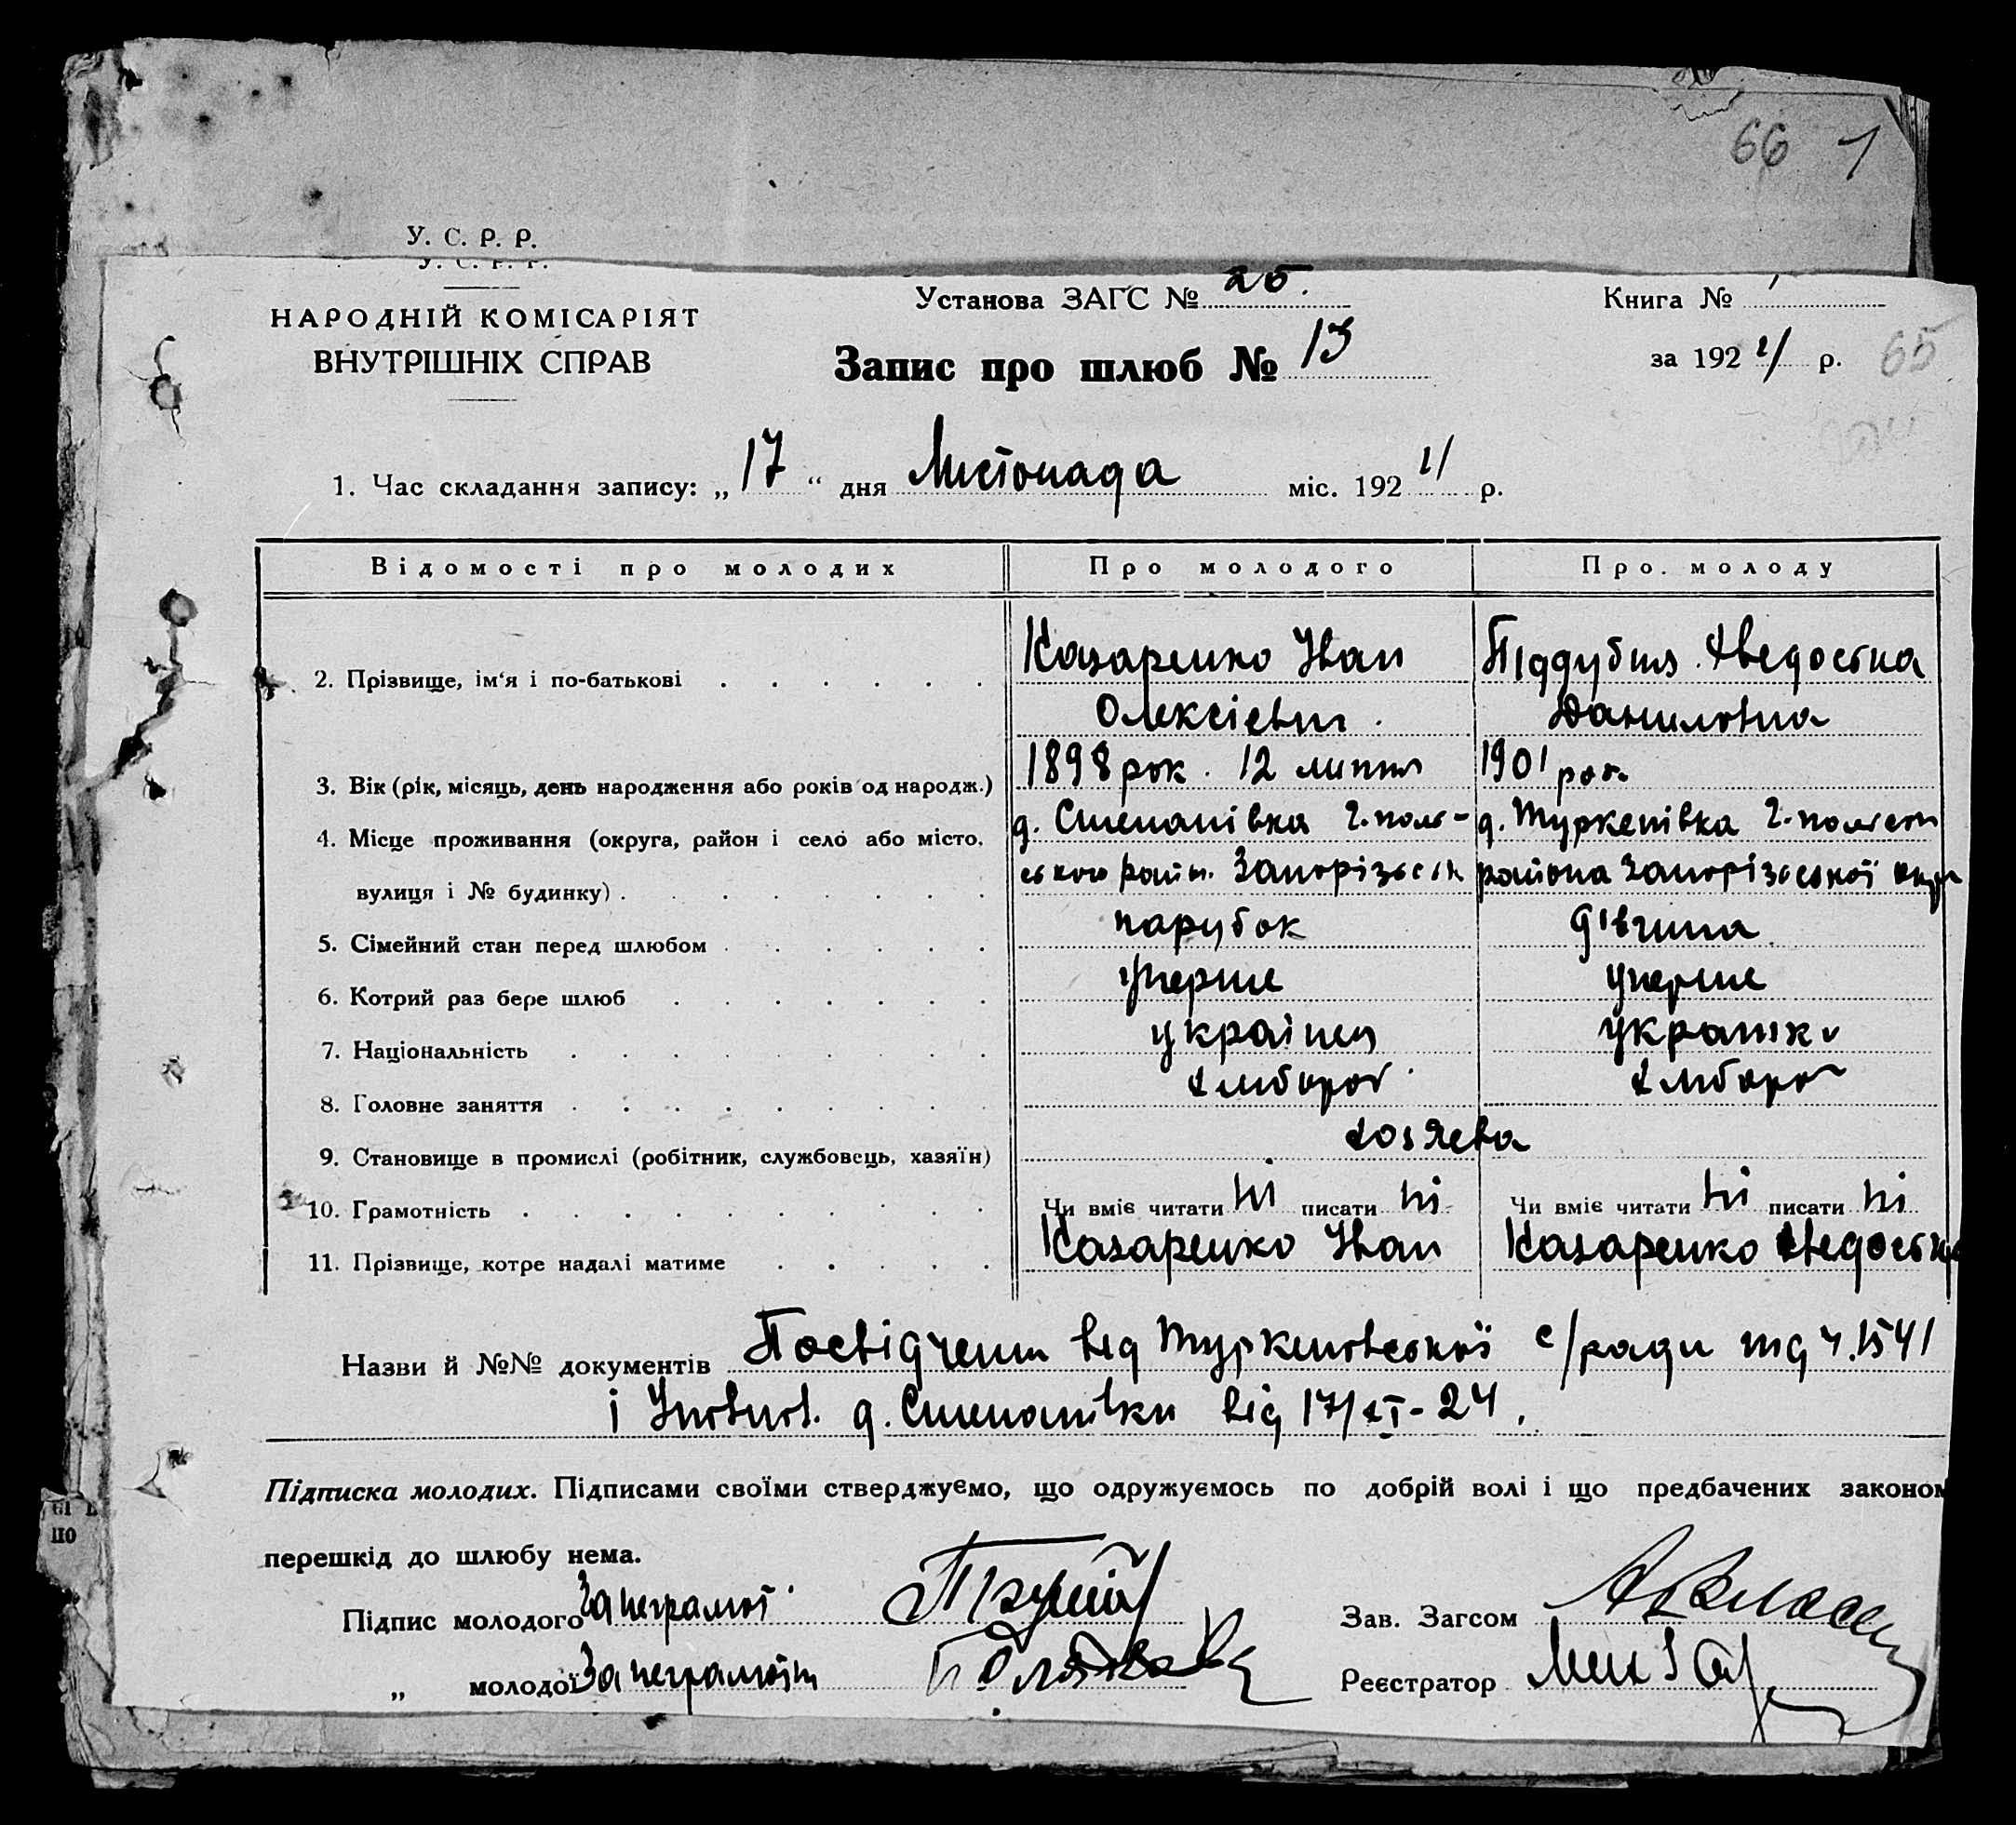 66 1
У. С. Р. Р.
У. С. Р. Р.
НАРОДНІЙ КОМІСАРІЯТ
ВНУТРІШНІХ СПРАВ
Установа ЗАГС № 25.
Книга № 1
Запис про шлюб № 13
за 1924 р. 65
1. Час складання запису: „17“ дня Листопада міс. 1924 р.
Відомості про молодих Про молодого Про. молоду
2. Прізвище, ім‘я і по-батькові Казаренко Іван Піддубна Явдоська
Олексієвич. Даниловна
3. Вік (рік, місяць, день народження або років од народж.) 1898 рок. 12 липня 1901 рок
4. Місце проживання (округа, район і село або місто, д. Степанівка Г.поль- д. Туркенівка Г.польськ
вулиця і № будинку) ського райн. Запорізськ района Запорізської окр
5. Сімейний стан перед шлюбом парубок дівчина
6. Котрий раз бере шлюб уперше уперше
7. Національність українец українка
8. Головне заняття хлібороб хлібороб
9. Становище в промислі (робітник, службовець, хазяїн) хозяева
10. Грамотність Чи вміє читати ні писати ні Чи вміє читати ні писати ні
11. Прізвище, котре надалі матиме Казаренко Іван Казаренко Явдоська
Назви й №№ документів Посвідченя від Туркеновської с/ради під ч. 1541
і Уповнов. д. Степанівки від 17/XI-24.
Підписка молодих. Підписами своїми стверджуємо, що одружуємось по добрій волі і що предбачених законом
перешкід до шлюбу нема.
Підпис молодого За неграмот Зав. Загсом
„ молодої За неграмотн Реєстратор